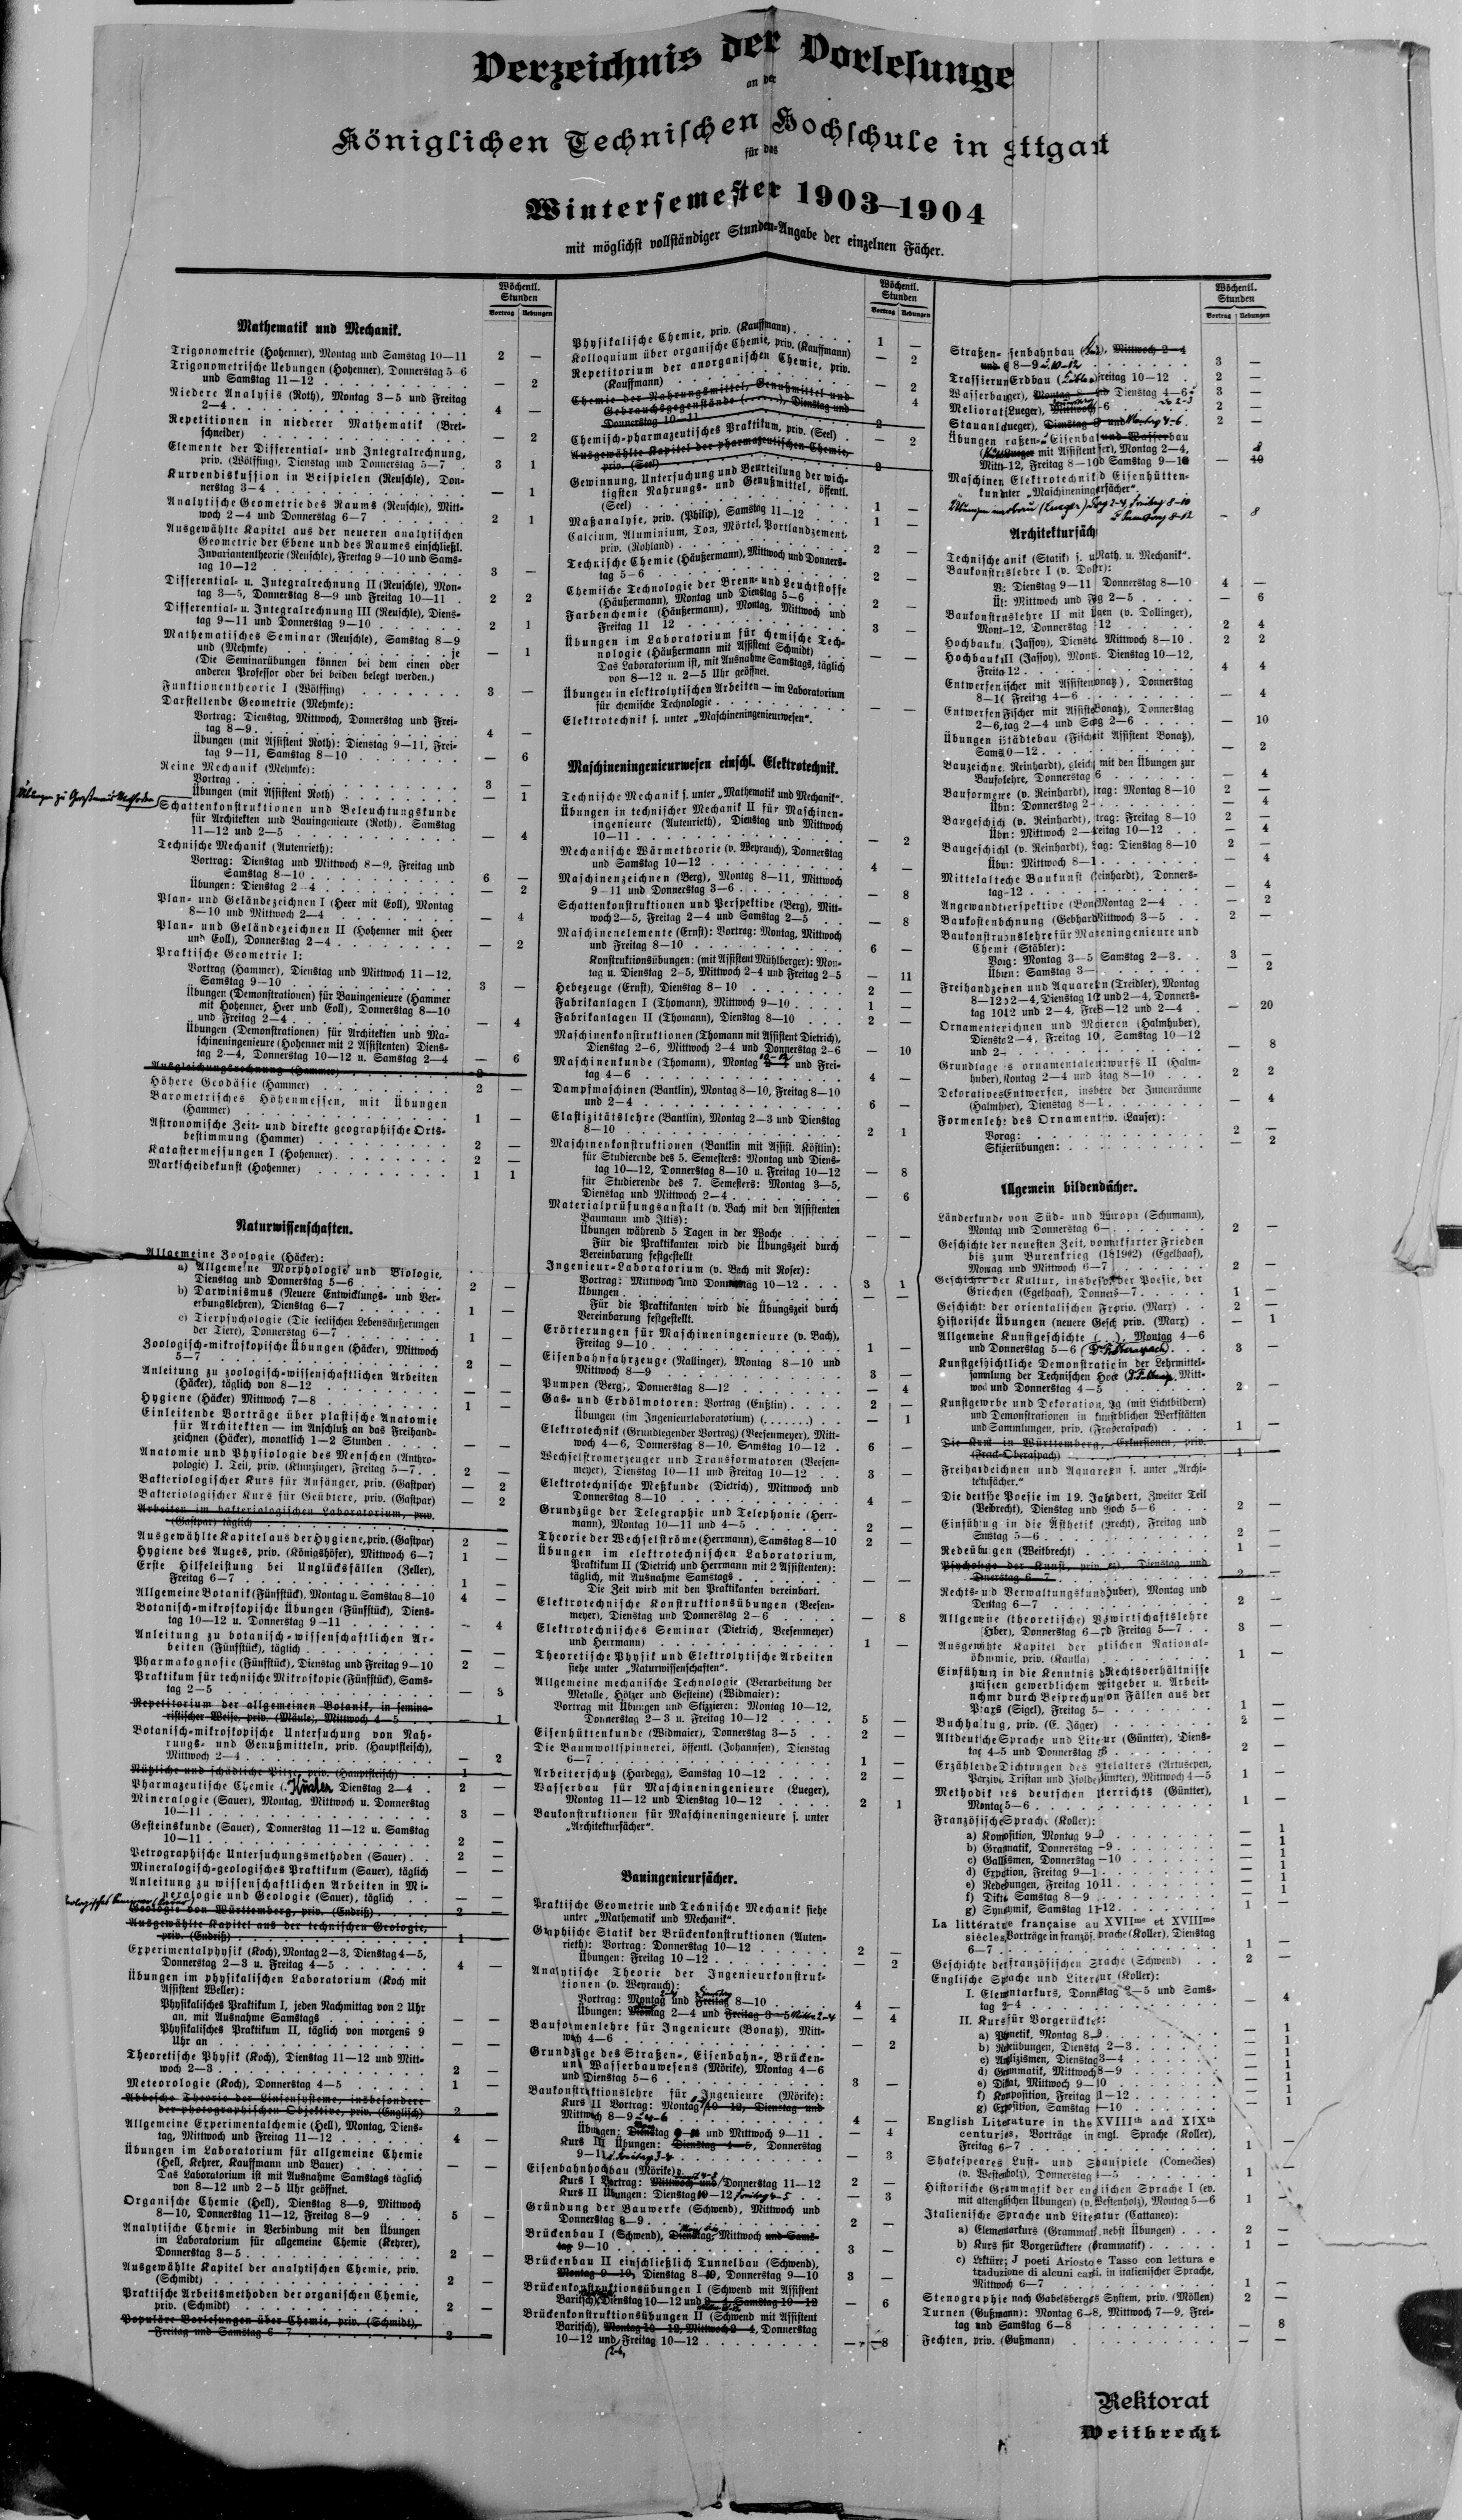 Verzeichnis der Vorlesunge
an der
Königlichen Technischen Hochschule in ttgart
für das
Wintersemester 1903–1904
mit möglichst vollständiger Stunden-Angabe der einzelnen Fächer.
Wöchentl. Stunden
Vortrag Uebungen
Mathematik und Mechanik.
Trigonometrie (Hohenner), Montag und Samstag 10—11 2 —
Trigonometrische Uebungen (Hohenner), Donnerstag 5–6
und Samstag 11–12 — 2
Niedere Analysis (Roth), Montag 3–5 und Freitag
2–4 4 —
Repetitionen in niederer Mathematik (Bret-
schneider) — 2
Elemente der Differential- und Integralrechnung,
priv. (Wölffing), Dienstag und Donnerstag 5–7 3 1
Kurvendiskussion in Beispielen (Reuschle), Don-
nerstag 3–4 — 1
Analytische Geometrie des Raums (Reuschle), Mitt-
woch 2–4 und Donnerstag 6–7 2 1
Ausgewählte Kapitel aus der neueren analytischen
Geometrie der Ebene und des Raumes einschließl.
Invariantentheorie (Reuschle), Freitag 9–10 und Sams-
tag 10–12 3 —
Differential- u. Integralrechnung II (Reuschle), Mon-
tag 3–5, Donnerstag 8–9 und Freitag 10–11 2 2
Differential- u. Integralrechnung III (Reuschle), Diens-
tag 9–11 und Donnerstag 9–10 2 1
Mathematisches Seminar (Reuschle), Samstag 8–9
und (Mehmke) je — 1
(Die Seminarübungen können bei dem einen oder
anderen Professor oder bei beiden belegt werden.)
Funktionentheorie I (Wölffing) 3 —
Darstellende Geometrie (Mehmke):
Vortrag: Dienstag, Mittwoch, Donnerstag und Frei-
tag 8–9 4 —
Übungen (mit Assistent Roth): Dienstag 9–11, Frei-
tag 9–11, Samstag 8–10 — 6
Reine Mechanik (Mehmke):
Vortrag 3 —
Übungen (mit Assistent Roth) — 1
Schattenkonstruktionen und Beleuchtungskunde
für Architekten und Bauingenieure (Roth), Samstag
11–12 und 2–5 — 4
Technische Mechanik (Autenrieth):
Vortrag: Dienstag und Mittwoch 8–9, Freitag und
Samstag 8–10 6 —
Übungen: Dienstag 2–4 — 2
Plan- und Geländezeichnen I (Heer mit Eoll), Montag
8–10 und Mittwoch 2–4 — 4
Plan- und Geländezeichnen II (Hohenner mit Heer
und Eoll), Donnerstag 2–4 — 2
Praktische Geometrie I:
Vortrag (Hammer), Dienstag und Mittwoch 11–12,
Samstag 9–10 3 —
Übungen (Demonstrationen) für Bauingenieure (Hammer
mit Hohenner, Heer und Eoll), Donnerstag 8–10
und Freitag 2–4 — 4
Übungen (Demonstrationen) für Architekten und Ma-
schineningenieure (Hohenner mit 2 Assistenten) Diens-
tag 2–4, Donnerstag 10–12 u. Samstag 2–4 — 6
Ausgleichungsrechnung (Hammer) 2
Höhere Geodäsie (Hammer) 2 —
Barometrisches Höhenmessen, mit Übungen
(Hammer) 1 —
Astronomische Zeit- und direkte geographische Orts-
bestimmung (Hammer) 2 —
Katastermessungen I (Hohenner) 2 —
Markscheidekunst (Hohenner) 1 1
Naturwissenschaften.
Allgemeine Zoologie (Häcker):
a) Allgemeine Morphologie und Biologie,
Dienstag und Donnerstag 5–6 2 —
b) Darwinismus (Neuere Entwicklungs- und Ver-
erbungslehren), Dienstag 6–7 1 —
c) Tierpsychologie (Die seelischen Lebensäußerungen
der Tiere), Donnerstag 6–7 1 —
Zoologisch-mikroskopische Übungen (Häcker), Mittwoch
5–7 2 —
Anleitung zu zoologisch-wissenschaftlichen Arbeiten
(Häcker), täglich von 8–12 — —
Hygiene (Häcker) Mittwoch 7–8 1 —
Einleitende Vorträge über plastische Anatomie
für Architekten — im Anschluß an das Freihand-
zeichnen (Häcker), monatlich 1–2 Stunden — —
Anatomie und Physiologie des Menschen (Anthro-
pologie) I. Teil, priv. (Klunzinger), Freitag 5–7 2 —
Bakteriologischer Kurs für Anfänger, priv. (Gastpar) — 2
Bakteriologischer Kurs für Geübtere, priv. (Gastpar) — 2
Arbeiten im bakteriologischen Laboratorium, priv.
(Gastpar) täglich
Ausgewählte Kapitel aus der Hygiene, priv. (Gastpar) 2 —
Hygiene des Auges, priv. (Königshöfer), Mittwoch 6–7 1 —
Erste Hilfeleistung bei Unglücksfällen (Zeller),
Freitag 6–7 1 —
Allgemeine Botanik (Fünfstück), Montag u. Samstag 8–10 4 —
Botanisch-mikroskopische Übungen (Fünfstück), Diens-
tag 10–12 u. Donnerstag 9–11 — 4
Anleitung zu botanisch-wissenschaftlichen Ar-
beiten (Fünfstück), täglich — —
Pharmakognosie (Fünfstück), Dienstag und Freitag 9–10 2 —
Praktikum für technische Mikroskopie (Fünfstück), Sams-
tag 2–5 — 3
Repetitorium der allgemeinen Botanik, in semina-
ristischer Weise, priv. (Mäule), Mittwoch 4–5 — 1
Botanisch-mikroskopische Untersuchung von Nah-
rungs- und Genußmitteln, priv. (Hauptfleisch),
Mittwoch 2–4 — 2
Nützliche und schädliche Pilze, priv. (Hauptfleisch) 1
Pharmazeutische Chemie Dienstag 2–4 2 —
Mineralogie (Sauer), Montag, Mittwoch u. Donnerstag
10–11 3 —
Gesteinskunde (Sauer), Donnerstag 11–12 u. Samstag
10–11 2 —
Petrographische Untersuchungsmethoden (Sauer) 2 —
Mineralogisch-geologisches Praktikum (Sauer), täglich — —
Anleitung zu wissenschaftlichen Arbeiten in Mi-
neralogie und Geologie (Sauer), täglich — —
Geologie von Württemberg, priv. (Endriß) 2 —
Ausgewählte Kapitel aus der technischen Geologie,
priv. (Endriß) 1 —
Experimentalphysik (Koch), Montag 2–3, Dienstag 4–5,
Donnerstag 2–3 u. Freitag 4–5 4 —
Übungen im physikalischen Laboratorium (Koch mit
Assistent Weller):
Physikalisches Praktikum I, jeden Nachmittag von 2 Uhr
an, mit Ausnahme Samstags — —
Physikalisches Praktikum II, täglich von morgens 9
Uhr an — —
Theoretische Physik (Koch), Dienstag 11–12 und Mitt-
woch 2–3 2 —
Meteorologie (Koch), Donnerstag 4–5 1 —
Abbesche Theorie der Linsensysteme, insbesondere
der photographischen Objektive, priv. (Englisch) 2 —
Allgemeine Experimentalchemie (Hell), Montag, Diens-
tag, Mittwoch und Freitag 11–12 4 —
Übungen im Laboratorium für allgemeine Chemie
(Hell, Kehrer, Kauffmann und Bauer) — —
Das Laboratorium ist mit Ausnahme Samstags täglich
von 8–12 und 2–5 Uhr geöffnet.
Organische Chemie (Hell), Dienstag 8–9, Mittwoch
8–10, Donnerstag 11–12, Freitag 8–9 5 —
Analytische Chemie in Verbindung mit den Übungen
im Laboratorium für allgemeine Chemie (Kehrer),
Donnerstag 3–5 2 —
Ausgewählte Kapitel der analytischen Chemie, priv.
(Schmidt) 2 —
Praktische Arbeitsmethoden der organischen Chemie,
priv. (Schmidt) 2 —
Populäre Vorlesungen über Chemie, priv. (Schmidt),
Freitag und Samstag 6–7 2 —
Wöchentl. Stunden
Vortrag Uebungen
Physikalische Chemie, priv. (Kauffmann) 1 —
Kolloquium über organische Chemie, priv. (Kauffmann) — 2
Repetitorium der anorganischen Chemie, priv.
(Kauffmann) — 2
Chemie der Nahrungsmittel, Genußmittel und
Gebrauchsgegenstände (.......), Dienstag und
Donnerstag 10–11 2
Chemisch-pharmazeutisches Praktikum, priv. (Seel) — 2
Ausgewählte Kapitel der pharmazeutischen Chemie,
priv. (Seel) 2
Gewinnung, Untersuchung und Beurteilung der wich-
tigsten Nahrungs- und Genußmittel, öffentl.
(Seel) 1 —
Maßanalyse, priv. (Philip), Samstag 11–12 1 —
Calcium, Aluminium, Ton, Mörtel, Portlandzement,
priv. (Rohland) 2 —
Technische Chemie (Häußermann), Mittwoch und Donners-
tag 5–6 2 —
Chemische Technologie der Brenn- und Leuchtstoffe
(Häußermann), Montag und Dienstag 5–6 2 —
Farbenchemie (Häußermann), Montag, Mittwoch und
Freitag 11 12 3 —
Übungen im Laboratorium für chemische Tech-
nologie (Häußermann mit Assistent Schmidt) — —
Das Laboratorium ist, mit Ausnahme Samstags, täglich
von 8–12 u. 2–5 Uhr geöffnet.
Übungen in elektrolytischen Arbeiten — im Laboratorium
für chemische Technologie — —
Elektrotechnik s. unter „Maschineningenieurwesen“.
Maschineningenieurwesen einschl. Elektrotechnik.
Technische Mechanik s. unter „Mathematik und Mechanik“.
Übungen in technischer Mechanik II für Maschinen-
ingenieure (Autenrieth), Dienstag und Mittwoch
10–11 — 2
Mechanische Wärmetheorie (v. Weyrauch), Donnerstag
und Samstag 10–12 4 —
Maschinenzeichnen (Berg), Montag 8–11, Mittwoch
9–11 und Donnerstag 3–6 — 8
Schattenkonstruktionen und Perspektive (Berg), Mitt-
woch 2–5, Freitag 2–4 und Samstag 2–5 — 8
Maschinenelemente (Ernst): Vortrag: Montag, Mittwoch
und Freitag 8–10 6 —
Konstruktionsübungen: (mit Assistent Mühlberger): Mon-
tag u. Dienstag 2–5, Mittwoch 2–4 und Freitag 2–5 — 11
Hebezeuge (Ernst), Dienstag 8–10 2 —
Fabrikanlagen I (Thomann), Mittwoch 9–10 1 —
Fabrikanlagen II (Thomann), Dienstag 8–10 2 —
Maschinenkonstruktionen (Thomann mit Assistent Dietrich),
Dienstag 2–6, Mittwoch 2–4 und Donnerstag 2–6 — 10
Maschinenkunde (Thomann), Montag 10–12 und Frei-
tag 4–6 4 —
Dampfmaschinen (Bantlin), Montag 8–10, Freitag 8–10
und 2–4 6 —
Elastizitätslehre (Bantlin), Montag 2–3 und Dienstag
8–10 2 1
Maschinenkonstruktionen (Bantlin mit Assist. Köstlin):
für Studierende des 5. Semesters: Montag und Diens-
tag 10–12, Donnerstag 8–10 u. Freitag 10–12 — 8
für Studierende des 7. Semesters: Montag 3–5,
Dienstag und Mittwoch 2–4 — 6
Materialprüfungsanstalt (v. Bach mit den Assistenten
Baumann und Iltis):
Übungen während 5 Tagen in der Woche — —
Für die Praktikanten wird die Übungszeit durch
Vereinbarung festgestellt
Ingenieur-Laboratorium (v. Bach mit Roser):
Vortrag: Mittwoch und Donnerstag 10–12 3 1
Übungen — —
Für die Praktikanten wird die Übungszeit durch
Vereinbarung festgestellt.
Erörterungen für Maschineningenieure (v. Bach),
Freitag 9–10 1 —
Eisenbahnfahrzeuge (Nallinger), Montag 8–10 und
Mittwoch 8–9 3 —
Pumpen (Berg), Donnerstag 8–12 — 4
Gas- und Erdölmotoren: Vortrag (Enßlin) 2 —
Übungen (im Ingenieurlaboratorium) (.......) — 1
Elektrotechnik (Grundlegender Vortrag) (Veesenmeyer), Mitt-
woch 4–6, Donnerstag 8–10, Samstag 10–12 6 —
Wechselstromerzeuger und Transformatoren (Veesen-
meyer), Dienstag 10–11 und Freitag 10–12 3 —
Elektrotechnische Meßkunde (Dietrich), Mittwoch und
Donnerstag 8–10 4 —
Grundzüge der Telegraphie und Telephonie (Herr-
mann), Montag 10–11 und 4–5 2 —
Theorie der Wechselströme (Herrmann), Samstag 8–10 2 —
Übungen im elektrotechnischen Laboratorium,
Praktikum II (Dietrich und Herrmann mit 2 Assistenten):
täglich, mit Ausnahme Samstags — —
Die Zeit wird mit den Praktikanten vereinbart.
Elektrotechnische Konstruktionsübungen (Veesen-
meyer), Dienstag und Donnerstag 2–6 — 8
Elektrotechnisches Seminar (Dietrich, Veesenmeyer)
und Herrmann) 1 —
Theoretische Physik und Elektrolytische Arbeiten
siehe unter „Naturwissenschaften“.
Allgemeine mechanische Technologie (Verarbeitung der
Metalle, Hölzer und Gesteine) (Widmaier):
Vortrag mit Übungen und Skizzieren: Montag 10–12,
Donnerstag 2–3 u. Freitag 10–12 5 —
Eisenhüttenkunde (Widmaier), Donnerstag 3–5 2 —
Die Baumwollspinnerei, öffentl. (Johannsen), Dienstag
6–7 1 —
Arbeiterschutz (Hardegg), Samstag 10–12 2 —
Wasserbau für Maschineningenieure (Lueger),
Montag 11–12 und Dienstag 10–12 2 1
Baukonstruktionen für Maschineningenieure s. unter
„Architekturfächer“.
Bauingenieurfächer.
Praktische Geometrie und Technische Mechanik siehe
unter „Mathematik und Mechanik“.
Graphische Statik der Brückenkonstruktionen (Auten-
rieth): Vortrag: Donnerstag 10–12 2 —
Übungen: Freitag 10–12 — 2
Analytische Theorie der Ingenieurkonstruk-
tionen (v. Weyrauch):
Vortrag: Montag und Freitag 8–10 4 —
Übungen: Montag 2–4 und Freitag 3–5 — 4
Bauformenlehre für Ingenieure (Bonatz), Mitt-
woch 4–6 — 2
Grundzüge des Straßen-, Eisenbahn-, Brücken-
und Wasserbauwesens (Mörike), Montag 4–6
und Dienstag 5–6 3 —
Baukonstruktionslehre für Ingenieure (Mörike):
Kurs II Vortrag: Montag 10–12, Dienstag und
Mittwoch 8–9 4 —
Übungen: Dienstag und Mittwoch 9–11 — 4
Kurs III Übungen: Dienstag 4–5, Donnerstag
9–11 — 3
Eisenbahnhochbau (Mörike)
Kurs I Vortrag: Mittwoch und Donnerstag 11–12 2 —
Kurs II Übungen: Dienstag 10–12 — 3
Gründung der Bauwerke (Schwend), Mittwoch und
Donnerstag 8–9 2 —
Brückenbau I (Schwend), Dienstag, Mittwoch und Sams-
tag 9–10 3 —
Brückenbau II einschließlich Tunnelbau (Schwend),
Montag 9–10, Dienstag 8–10, Donnerstag 9–10 3 —
Brückenkonstruktionsübungen I (Schwend mit Assistent
Baritsch), Dienstag 10–12 und Samstag 10–12 — 6
Brückenkonstruktionsübungen II (Schwend mit Assistent
Baritsch), Montag 10–12, Mittwoch 2–4, Donnerstag
10–12 und Freitag 10–12 — 8
Wöchentl. Stunden
Vortrag Uebungen
Straßen- senbahnbau Mittwoch 2–4
8–9 u. 10–12 3 —
Trassierun Erdbau reitag 10–12 2 —
Wasserba Dienstag 4–6 3 —
Meliorat (Lueger), Mittwoch 2 —
Stauanl Lueger), Dienstag 2 —
Übungen raßen- Eisenba und Wasserbau
mit Assistent Montag 2–4,
Freitag 8–10 Samstag 9–10 — 10
Maschinen Elektrotechni Eisenhütten-
kun nter „Maschineningen
Architekturfäch
Technische anik (Statik) s. u Math. u. Mechanik“.
Baukonstr slehre I (v. Dol
Dienstag 9–11 Donnerstag 8–10 4 —
Mittwoch und 2–5 — 6
Baukonstr slehre II mit gen (v. Dollinger),
Mont -12, Donnerstag 12 2 4
Hochbauk (Jassoy), Dienst Mittwoch 8–10 2 2
Hochbauk III (Jassoy), Mont Dienstag 10–12,
Freita 12 4 4
Entwerfen ischer mit Assisten onatz), Donnerstag
8–1 Freitag 4–6 — 4
Entwerfen Fischer mit Assist Bonatz), Donnerstag
2–6, tag 2–4 und 2–6 — 10
Übungen Städtebau (Fisch it Assistent Bonatz),
Sams 0–12 — 2
Bauzeichne Reinhardt), gleich mit den Übungen zur
Bauf lehre, Donnerstag 6 — 4
Bauformen (v. Reinhardt), trag: Montag 8–10 2 —
Übn: Donnerstag 2– — 4
Baugeschich (v. Reinhardt), trag: Freitag 8–10 2 —
Übn: Mittwoch 2– eitag 10–12 — 4
Baugeschichl (v. Reinhardt), ag: Dienstag 8–10 2 —
Übn: Mittwoch 8–1 — 4
Mittelalte che Baukunst einhardt), Donners-
tag -12 — 4
Angewandt erspektive (Bon Montag 2–4 — 2
Baukosten chnung (Gebhar Mittwoch 3–5 2 —
Baukonstru nslehre für Ma eningenieure und
Chemi (Stäbler):
Montag 3–5 Samstag 2–3 3 —
Samstag 3— — 2
Freihandze nen und Aquarel n (Treidler), Montag
8–12 2–4, Dienstag 10 und 2–4, Donners-
tag 10 12 und 2–4, Frei 8–12 und 2–4 — 20
Ornamente ichnen und M ieren (Halmhuber),
Dienst 2–4, Freitag 10, Samstag 10–12
und 2– — 8
Grundlage s ornamentalen wurfs II (Halm-
huber), ontag 2–4 und tag 8–10 2 2
Dekorative Entwerfen, insbe re der Innenräume
(Halm er), Dienstag 8–1 — 4
Formenleh des Ornament v. Lauser):
Vo rag: 2 —
Skiz erübungen: — 2
llgemein bildend ächer.
Länderkunde von Süd- und Europa (Schumann),
Montag und Donnerstag 6— 2 —
Geschichte der neuesten Zeit, vom furter Frieden
bis zum Burenkrieg (18 1902) (Egelhaaf),
Montag und Mittwoch 6–7 2 —
Geschichte der Kultur, insbeso der Poesie, der
Griechen (Egelhaaf), Donners –7 1 —
Geschichte der orientalischen priv. (Marx) 2 —
Historische Übungen (neuere Gesch priv. (Marx) — 1
Allgemeine Kunstgeschichte (...), Montag 4–6
und Donnerstag 5–6 3 —
Kunstgeschichtliche Demonstrati in der Lehrmittel-
sammlung der Technischen Hoc Mitt-
woch und Donnerstag 4–5 2 —
Kunstgewerbe und Dekoration, (mit Lichtbildern)
und Demonstrationen in kunst blichen Werkstätten
und Sammlungen, priv. 1 —
Die Kunst in Württemberg, Exkursionen, priv.
1 —
Freihandzeichnen und Aquarel n s. unter „Archi-
tekturfächer.“
Die deutsche Poesie im 19. Ja ndert, Zweiter Teil
(Weitbrecht), Dienstag und och 5–6 2 —
Einführung in die Ästhetik recht), Freitag und
Samstag 5–6 2 —
Redeübungen (Weitbrecht) 1 —
Psychologie der Kunst, priv. Dienstag und
Donnerstag 6–7 2 —
Rechts- und Verwaltungskund Huber), Montag und
Dienstag 6–7 2 —
Allgemeine (theoretische) V swirtschaftslehre
(Huber), Donnerstag 6–7 d Freitag 5–7 3 —
Ausgewählte Kapitel der p tischen National-
ökonomie, priv. (Kaulla) 1 —
Einführung in die Kenntnis d Rechtsverhältnisse
zwischen gewerblichem tgeber u. Arbeit-
nehmer durch Besprechun on Fällen aus der
Praxis (Sigel), Freitag 5– 1 —
Buchhaltung, priv. (E. Jäger) 2 —
Altdeutsche Sprache und Lite ur (Güntter), Diens-
tag 4–5 und Donnerstag 2 —
Erzählende Dichtungen des telalters (Artusepen,
Parzival, Tristan und Isolde üntter), Mittwoch 4–5 1 —
Methodik des deutschen terrichts (Güntter),
Montag 5–6 1 —
Französische Sprache (Koller):
a) Komposition, Montag 9– — 1
b) Grammatik, Donnerstag –9 — 1
c) Gallizismen, Donnerstag –10 — 1
d) Exposition, Freitag 9–1 — 1
e) Redeübungen, Freitag 10 11 — 1
f) Diktat Samstag 8–9 — 1
g) Synonymik, Samstag 11–12 1
La littérature française au XVIIme et XVIIIme
siècles, Vorträge in französ. prache (Koller), Dienstag
6–7 1 —
Geschichte der französischen Sprache (Schwend) 2 —
Englische Sprache und Literatur (Koller):
I. Elementarkurs, Donnerstag 2–5 und Sams-
tag 2–4 — 4
II. Kurs für Vorgerückte:
a) Phonetik, Montag 8–9 — 1
b) Redeübungen, Dienstag 2–3 — 1
c) Anglizismen, Dienstag 3–4 — 1
d) Grammatik, Mittwoch 8–9 — 1
e) Diktat, Mittwoch 9–10 — 1
f) Komposition, Freitag 11–12 — 1
g) Exposition, Samstag –10 — 1
English Literature in the XVIIIth and XIXth
centuries, Vorträge in engl. Sprache (Koller),
Freitag 6–7 1 —
Shakespeares Lust- und Schauspiele (Comedies)
(v. Westenholz), Donnerstag 4–5 1 —
Historische Grammatik der englischen Sprache I (ev.
mit altenglischen Übungen) (v. Westenholz), Montag 5–6 1 —
Italienische Sprache und Literatur (Cattaneo):
a) Elementarkurs (Grammat. nebst Übungen) 2 —
b) Kurs für Vorgerücktere (Grammatik) 1 —
c) Lektüre; I poeti Ariosto e Tasso con lettura e
traduzione di alcuni canti, in italienischer Sprache,
Mittwoch 6–7 1 —
Stenographie nach Gabelsbergers System, priv. (Möllen) 2 —
Turnen (Gußmann): Montag 6–8, Mittwoch 7–9, Frei-
tag und Samstag 6–8 — 8
Fechten, priv. (Gußmann) — —
Rektorat
Weitbrecht